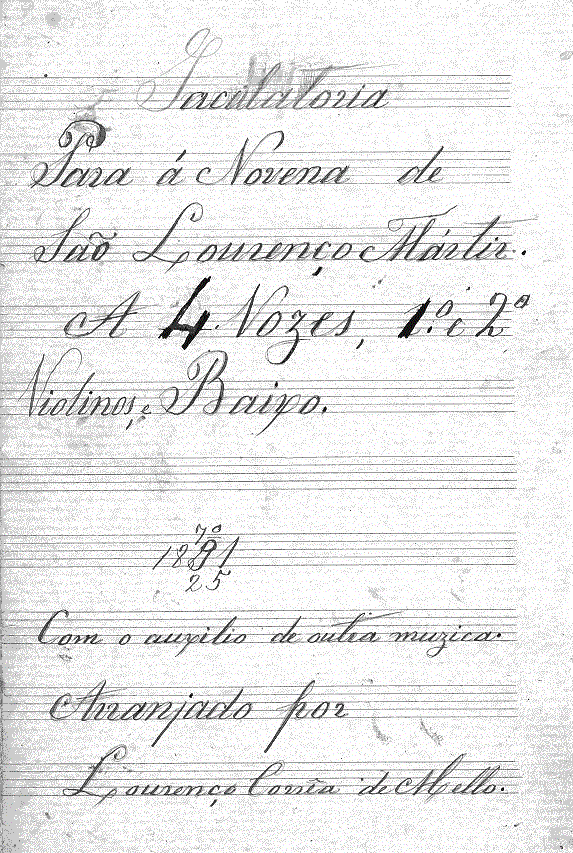 Jaculatoria
Para á Novena de
São Lourenço Mártir.
A 4 Vozes, 1.º e 2º
Violinos, e Baixo.
7º
1891
25
Com o auxilio de outra muzica.
Arranjado por
Lourenço Corrêa de Mello.